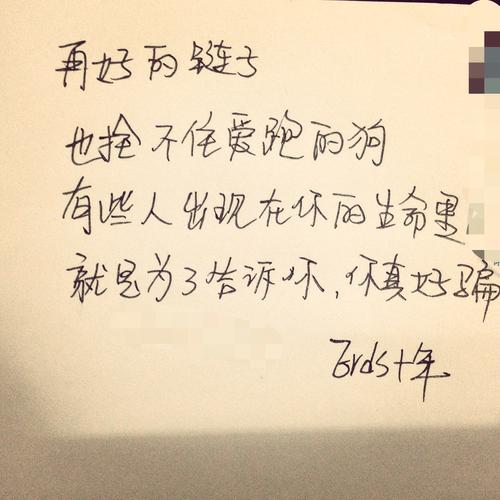 再好的链子
也拴不住爱跑的狗
有些人出现在你的生命里
就是为了告诉你,你真好骗
十年